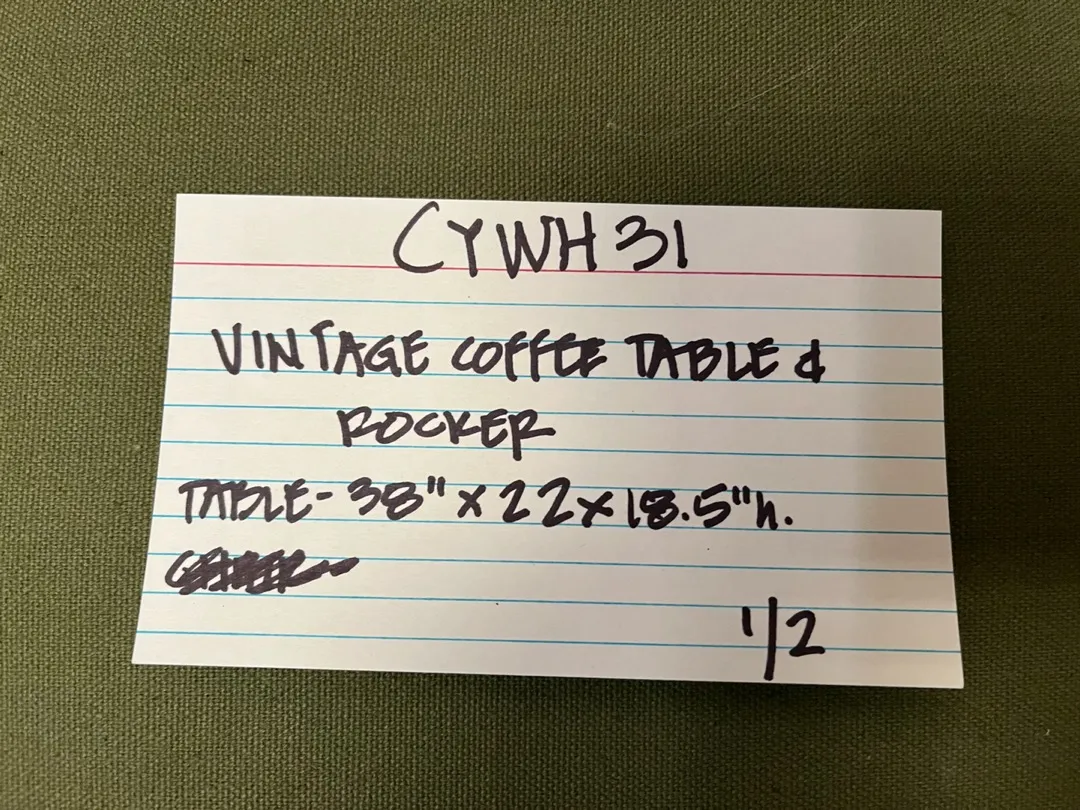 CYWH 31
VINTAGE COFFEE TABLE &
ROCKER
TABLE- 38" x 22 x 18.5"h.
1/2